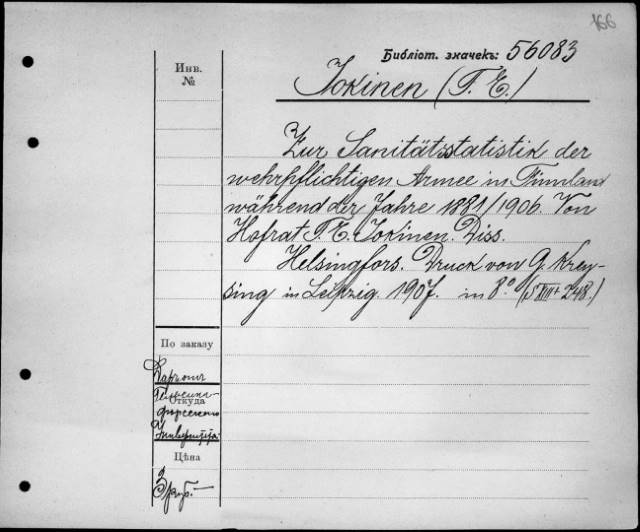 166
Библіот. значекъ: 56083
Инв.
№
Jokinen (T. E.)
Zur Sanitätsstatistik der
wehrpflichtigen Armee in Finnland
während der Jahre 1881/1906. Von
Hofrat T. E. Jokinen. Diss.
Helsingfors. Druck von G. Krey-
sing in Leipzig. 1907. in 8° (S VIII + 248.)
По заказу
Откуда
Гельсинг-
форсскаго
Университета
Цѣна
3 руб. —